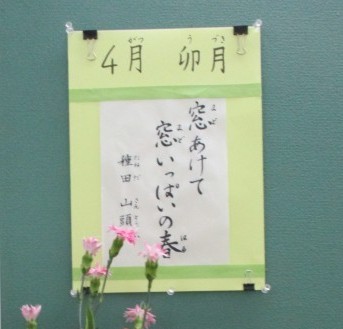 4月 卯月
窓あけて
窓いっぱいの春
種田 山頭